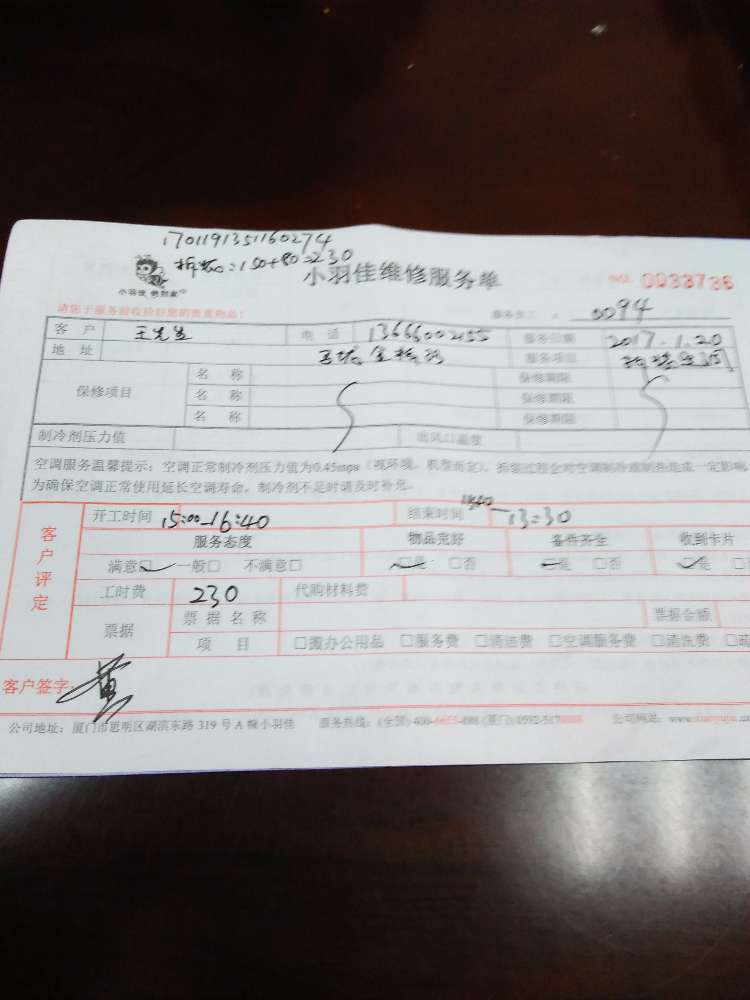 1701191351160274
拆装:150+80=230
小羽佳维修服务单 NO. 0033736
小羽佳
请您于服务前收拾好您的贵重物品! 服务员工 0094
客户 王先生 电话 13666002155 服务日期 2017.1.20
地址 服务项目
保修项目 名称 保修期限
名称 保修期限
名称 保修期限
制冷剂压力值 出风口温度
空调服务温馨提示:空调正常制冷剂压力值为0.45mpa(视环境、机型而定),拆装过程会对空调制冷或制热造成一定影响,
为确保空调正常使用延长空调寿命,制冷剂不足时请及时补充。
客户评定
开工时间 15:00-16:40 结束时间 -13:30
服务态度 物品完好 备件齐全 收到卡片
满意□ 一般□ 不满意□ □是 □否 □是 □否 □是 □
工时费 230 代购材料费
票据 票据名称 票据金额
项目 □搬办公用品 □服务费 □清洁费 □空调服务费 □清洗费 □
客户签字: 黄
公司地址:厦门市思明区湖滨东路 319 号 A 幢小羽佳 服务热线:(全国) 400-6655-888 (厦门) 0592-5178888 公司网站:www.xiaoyujia